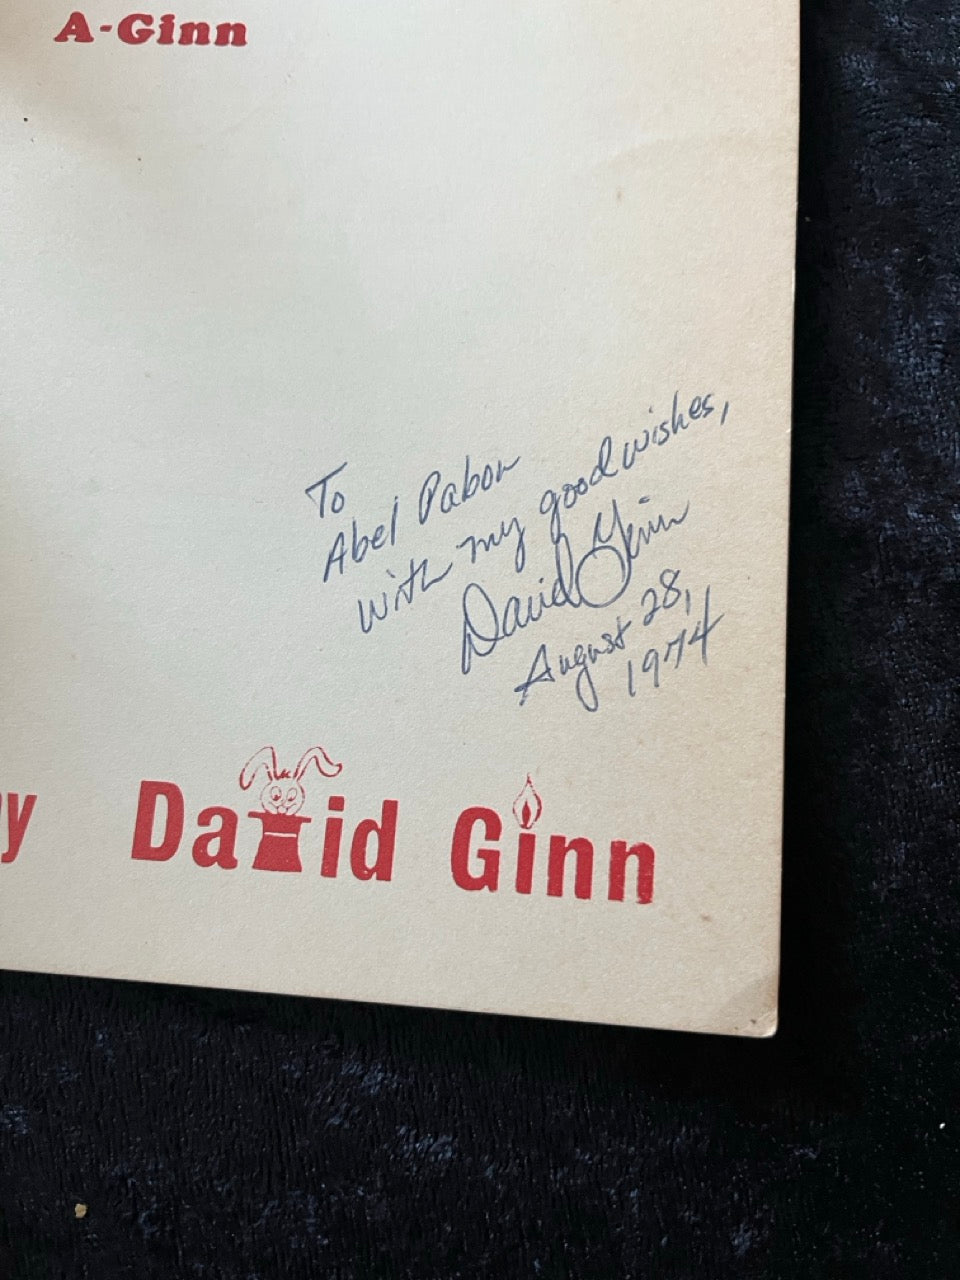 A-Ginn
To
Abel Pabon
with my good wishes,
David Ginn
August 28,
1974
y David Ginn